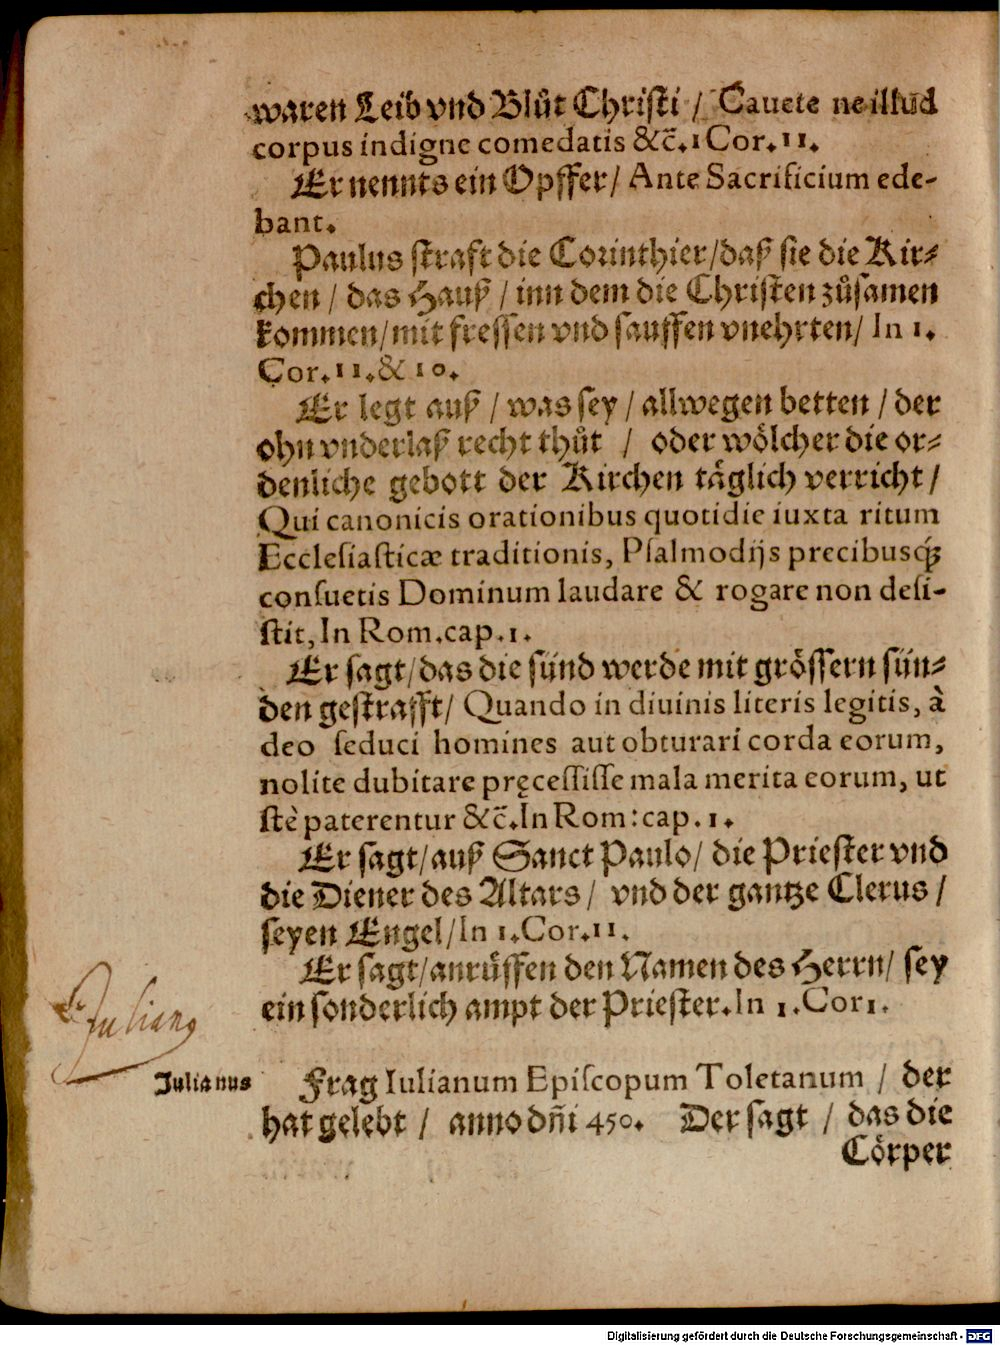 waren Leib vnd Blůt Christi / Cauete ne illud
corpus indigne comedatis &c̃. 1 Cor. 11.
Er nennts ein Opffer / Ante Sacrificium ede-
bant.
Paulus straft die Corinthier / daß sie die Kir-
chen / das Hauß / inn dem die Christen zůsamen
kommen / mit fressen vnd sauffen vnehrten / In 1.
Cor. 11. & 10.
Er legt auß / was sey / allwegen betten / der
ohn vnderlaß recht thůt / oder wölcher die or-
denliche gebott der Kirchen täglich verricht /
Qui canonicis orationibus quotidie iuxta ritum
Ecclesiasticæ traditionis, Psalmodijs precibusq́;
consuetis Dominum laudare & rogare non desi-
stit, In Rom. cap. 1.
Er sagt / das die sünd werde mit grössern sün-
den gestrafft / Quando in diuinis literis legitis, à
deo seduci homines aut obturari corda eorum,
nolite dubitare pręcessisse mala merita eorum, ut
stè paterentur &c̃. In Rom: cap. 1.
Er sagt / auß Sanct Paulo / die Priester vnd
die Diener des Altars / vnd der gantze Clerus /
seyen Engel / In 1. Cor. 11.
Er sagt / anrüffen den Namen des Herrn / sey
ein sonderlich ampt der Priester. In 1. Cor 1.
Julianus
Frag Iulianum Episcopum Toletanum / der
hat gelebt / anno dñi 450. Der sagt / das die
Cörper
Digitalisierung gefördert durch die Deutsche Forschungsgemeinschaft - DFG